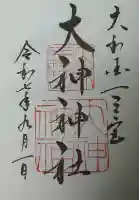 大和国一之宮
大神神社
令和七年九月一日